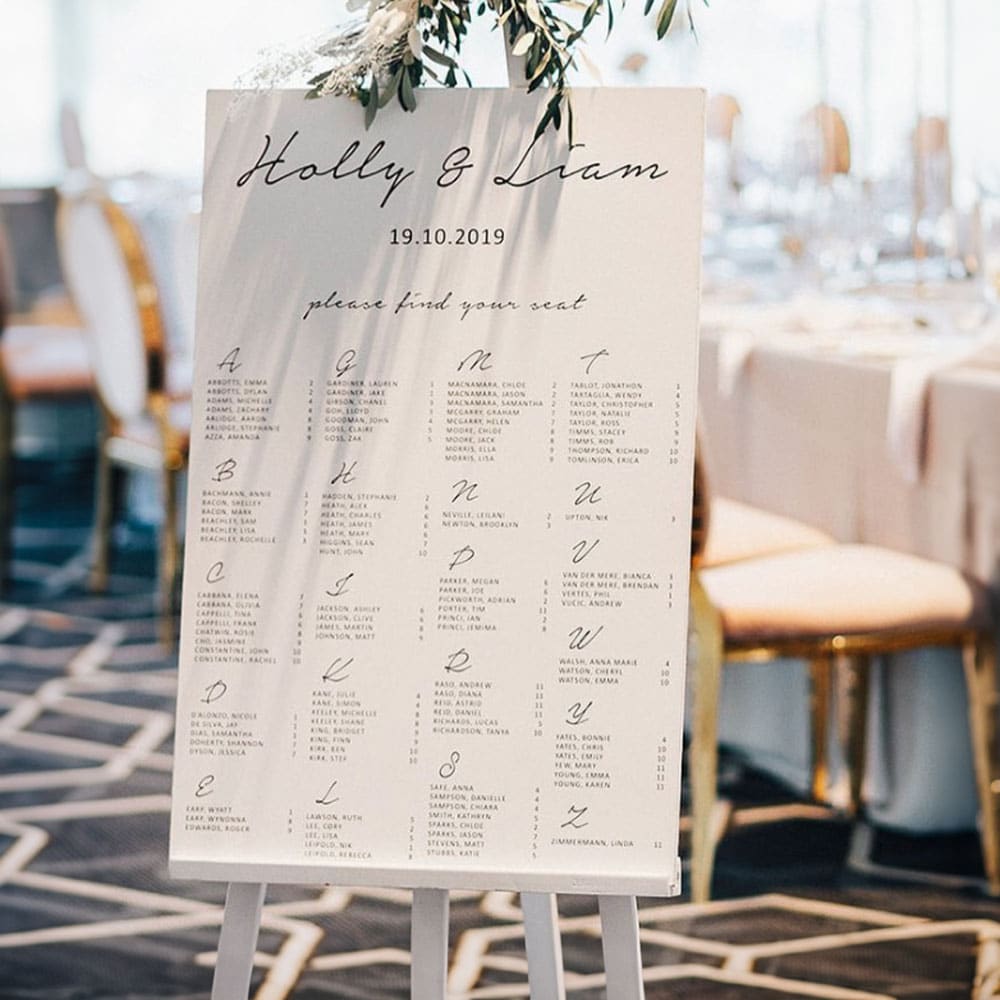 Holly & Liam
19.10.2019
please find your seat
A
ABBOTTS, EMMA 2
ABBOTTS, DYLAN 2
ADAMS, MICHELLE 4
ADAMS, ZACHARY 4
ARLIDGE, AARON 8
ARLIDGE, STEPHANIE 8
AZZA, AMANDA 9
B
BACHMANN, ANNIE
BACON, SHELLEY
BACON, MARK
BEACHLEY, SAM
BEACHLEY, LISA
BEACHLEY, ROCHELLE
C
CABBANA, ELENA
CABBANA, OLIVIA
CAPPELLI, TINA
CAPPELLI, FRANK
CHATWIN, ROSIE
CHO, JASMINE
CONSTANTINE, JOHN 10
CONSTANTINE, RACHEL 10
D
D'ALONZO, NICOLE
DE SILVA, JAY
DIAS, SAMANTHA
DOHERTY, SHANNON
DYSON, JESSICA
E
EARP, WYATT
EARP, WYNONNA
EDWARDS, ROGER 9
G
GARDINER, LAUREN 1
GARDINER, JAKE 1
GIBSON, CHANEL
GOH, LLOYD
GOODMAN, JOHN 4
GOSS, CLAIRE 5
GOSS, ZAK 5
H
HADDEN, STEPHANIE 2
HEATH, ALEX 6
HEATH, CHARLES 6
HEATH, JAMES 6
HEATH, MARY 6
HIGGINS, SEAN 7
HUNT, JOHN 10
I
JACKSON, ASHLEY 6
JACKSON, CLIVE 6
JAMES, MARTIN 8
JOHNSON, MATT 9
K
KANE, JULIE 4
KANE, SIMON 4
KEELEY, MICHELLE 8
KEELEY, SHANE 8
KING, BRIDGET 9
KING, FINN 9
KIRK, BEN 10
KIRK, STEF 10
L
LAWSON, RUTH
LEE, CORY
LEE, LISA
LEIPOLD, NIK
LEIPOLD, REBECCA
M
MACNAMARA, CHLOE 2
MACNAMARA, JASON 2
MACNAMARA, SAMANTHA 2
MCGARRY, GRAHAM 7
MCGARRY, HELEN 7
MOORE, CHLOE 8
MOORE, JACK 8
MORRIS, ELLA 9
MORRIS, LISA 9
N
NEVILLE, LEILANI 2
NEWTON, BROOKLYN 3
P
PARKER, MEGAN 6
PARKER, JOE 6
PICKWORTH, ADRIAN
PORTER, TIM
PRINCI, IAN
PRINCI, JEMIMA
R
RASO, ANDREW 11
RASO, DIANA 11
REID, ASTRID 11
REID, DANIEL 11
RICHARDS, LUCAS 5
RICHARDSON, TANYA 10
S
SAFE, ANNA 4
SAMPSON, DANIELLE 4
SAMPSON, CHIARA 4
SMITH, KATHRYN
SPARKS, CHLOE
SPARKS, JASON
STEVENS, MATT 5
STUBBS, KATIE 5
T
TABLOT, JONATHON 1
TARTAGLIA, WENDY 4
TAYLOR, CHRISTOPHER 5
TAYLOR, NATALIE 5
TAYLOR, ROSS 5
TIMMS, STACEY 9
TIMMS, ROB 9
THOMPSON, RICHARD 10
TOMLINSON, ERICA 10
U
UPTON, NIK 3
V
VAN DER MERE, BIANCA 3
VAN DER MERE, BRENDAN 3
VERTES, PHIL
VUCIC, ANDREW 3
W
WALSH, ANNA MARIE 4
WATSON, CHERYL 10
WATSON, EMMA 10
Y
YATES, BONNIE 4
YATES, CHRIS 10
YATES, EMILY 10
YEW, MARY 11
YOUNG, EMMA 11
YOUNG, KAREN 11
Z
ZIMMERMANN, LINDA 11